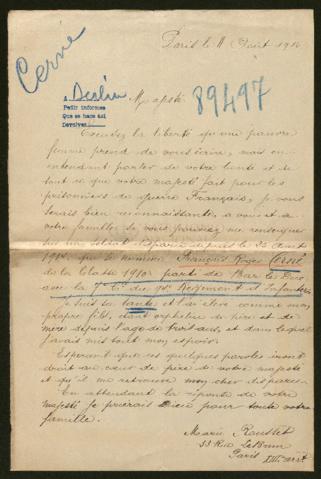 Cerné
Paris le 11 Août 1916
a Berlin
Pedir informes
Que se hace del
Devolver
Majesté
89497
Excusez la liberté qu'une pauvre
femme prend de vous écrire, mais en
entendant parler de votre bonté et de
tout ce que votre majesté fait pour les
prisonniers de Guerre Français, je vous
serais bien reconnaissante, a vous et a
votre famille si vous pouviez me renseigner
sur un soldat disparu depuis le Août
191 le nommé François Roger Cerné
de la Classe 1910 parti de Bar le Duc
avec la Cie du Régiment d'Infanterie
je suis sa tante et l'ai élevé comme mon
propre fils, étant orphelin de père et de
mère depuis l'age de trois ans, et dans lequel
j'avais mis tout mon espoir.
Esperant que ces quelques paroles iront
droit au cœur de père de votre majesté
et qu'il me retrouve mon cher disparu.
En attendant la réponse de votre
majesté je prierais Dieu pour toute votre
famille.
Marie Rousset
33 Rue
Paris